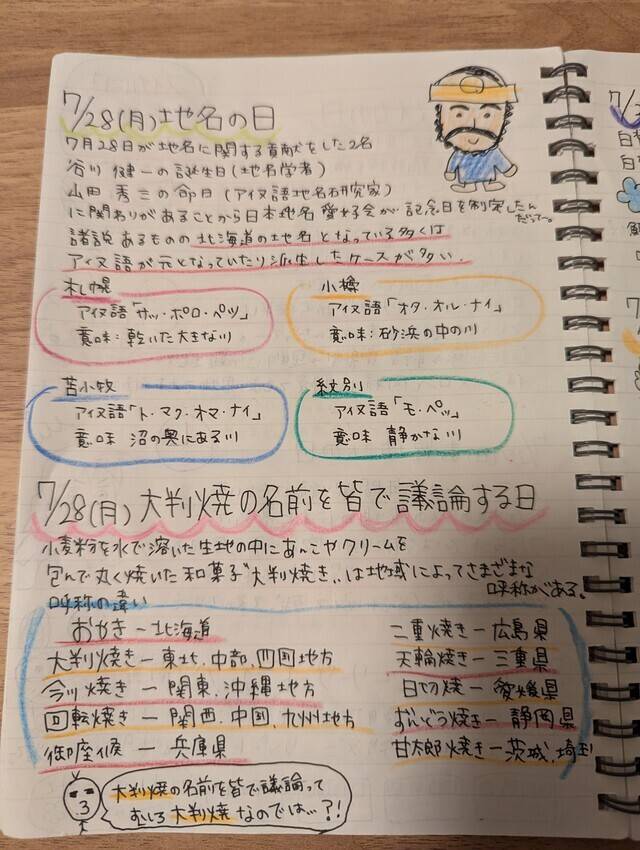 7/28(月)地名の日
7月28日が地名に関する貢献をした2名
谷川 健一の誕生日(地名学者)
山田 秀三の命日(アイヌ語地名研究家)
に関わりがあることから日本地名愛好会が記念日を制定したんだって。
諸説あるものの北海道の地名となっている多くは
アイヌ語が元となっていたり派生したケースが多い.
札幌
アイヌ語「サッ・ポロ・ペッ」
意味:乾いた大きな川
小樽
アイヌ語「オタ・オル・ナイ」
意味:砂浜の中の川
苫小牧
アイヌ語「ト・マク・オマ・ナイ」
意味 沼の奥にある川
紋別
アイヌ語「モ・ペッ」
意味 静かな川
7/28(月)大判焼の名前を皆で議論する日
小麦粉を水で溶いた生地の中にあんこやクリームを
包んで丸く焼いた和菓子"大判焼き"は地域によってさまざまな
呼称がある。
呼称の違い
おやきー北海道
大判焼きー東北.中部.四国地方
今川焼きー関東.沖縄地方
回転焼きー関西.中国.九州地方
御座候ー兵庫県
二重焼きー広島県
天輪焼きー三重県
日切焼ー愛媛県
ずんどう焼きー静岡県
甘太郎焼きー茨城.埼玉
大判焼の名前を皆で議論って
むしろ大判焼なのでは…?!